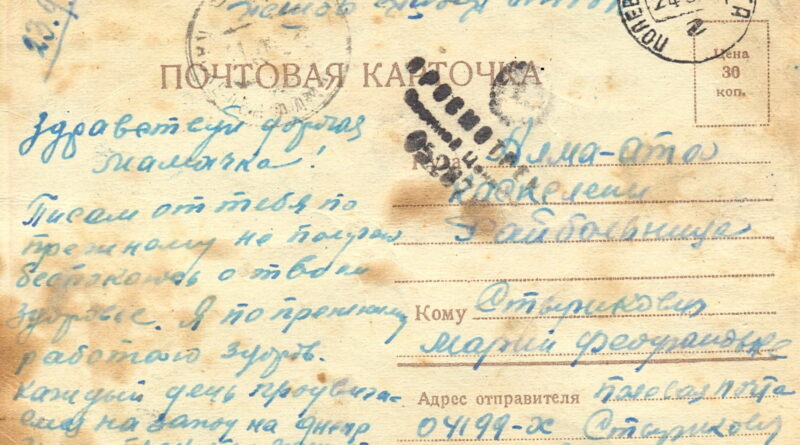 23.9
ПОЛЕВ
24
ПОЧТОВАЯ КАРТОЧКА
Цена
30
коп.
ПРОСМОТРЕНО
Военной Цензурой
05287
Здравствуй дорогая
мамочка!
Писем от тебя по
прежнему не получаю
беспокоюсь о твоем
здоровье. Я по прежнему
работаю здоров.
Каждый день продвига-
емся на запад на днепр
Куда Алма-ата
Каскелен
Райбольница
Кому Стырикович
Марии Феофановне
Адрес отправителя полевая почта
04199-Х Стырикович